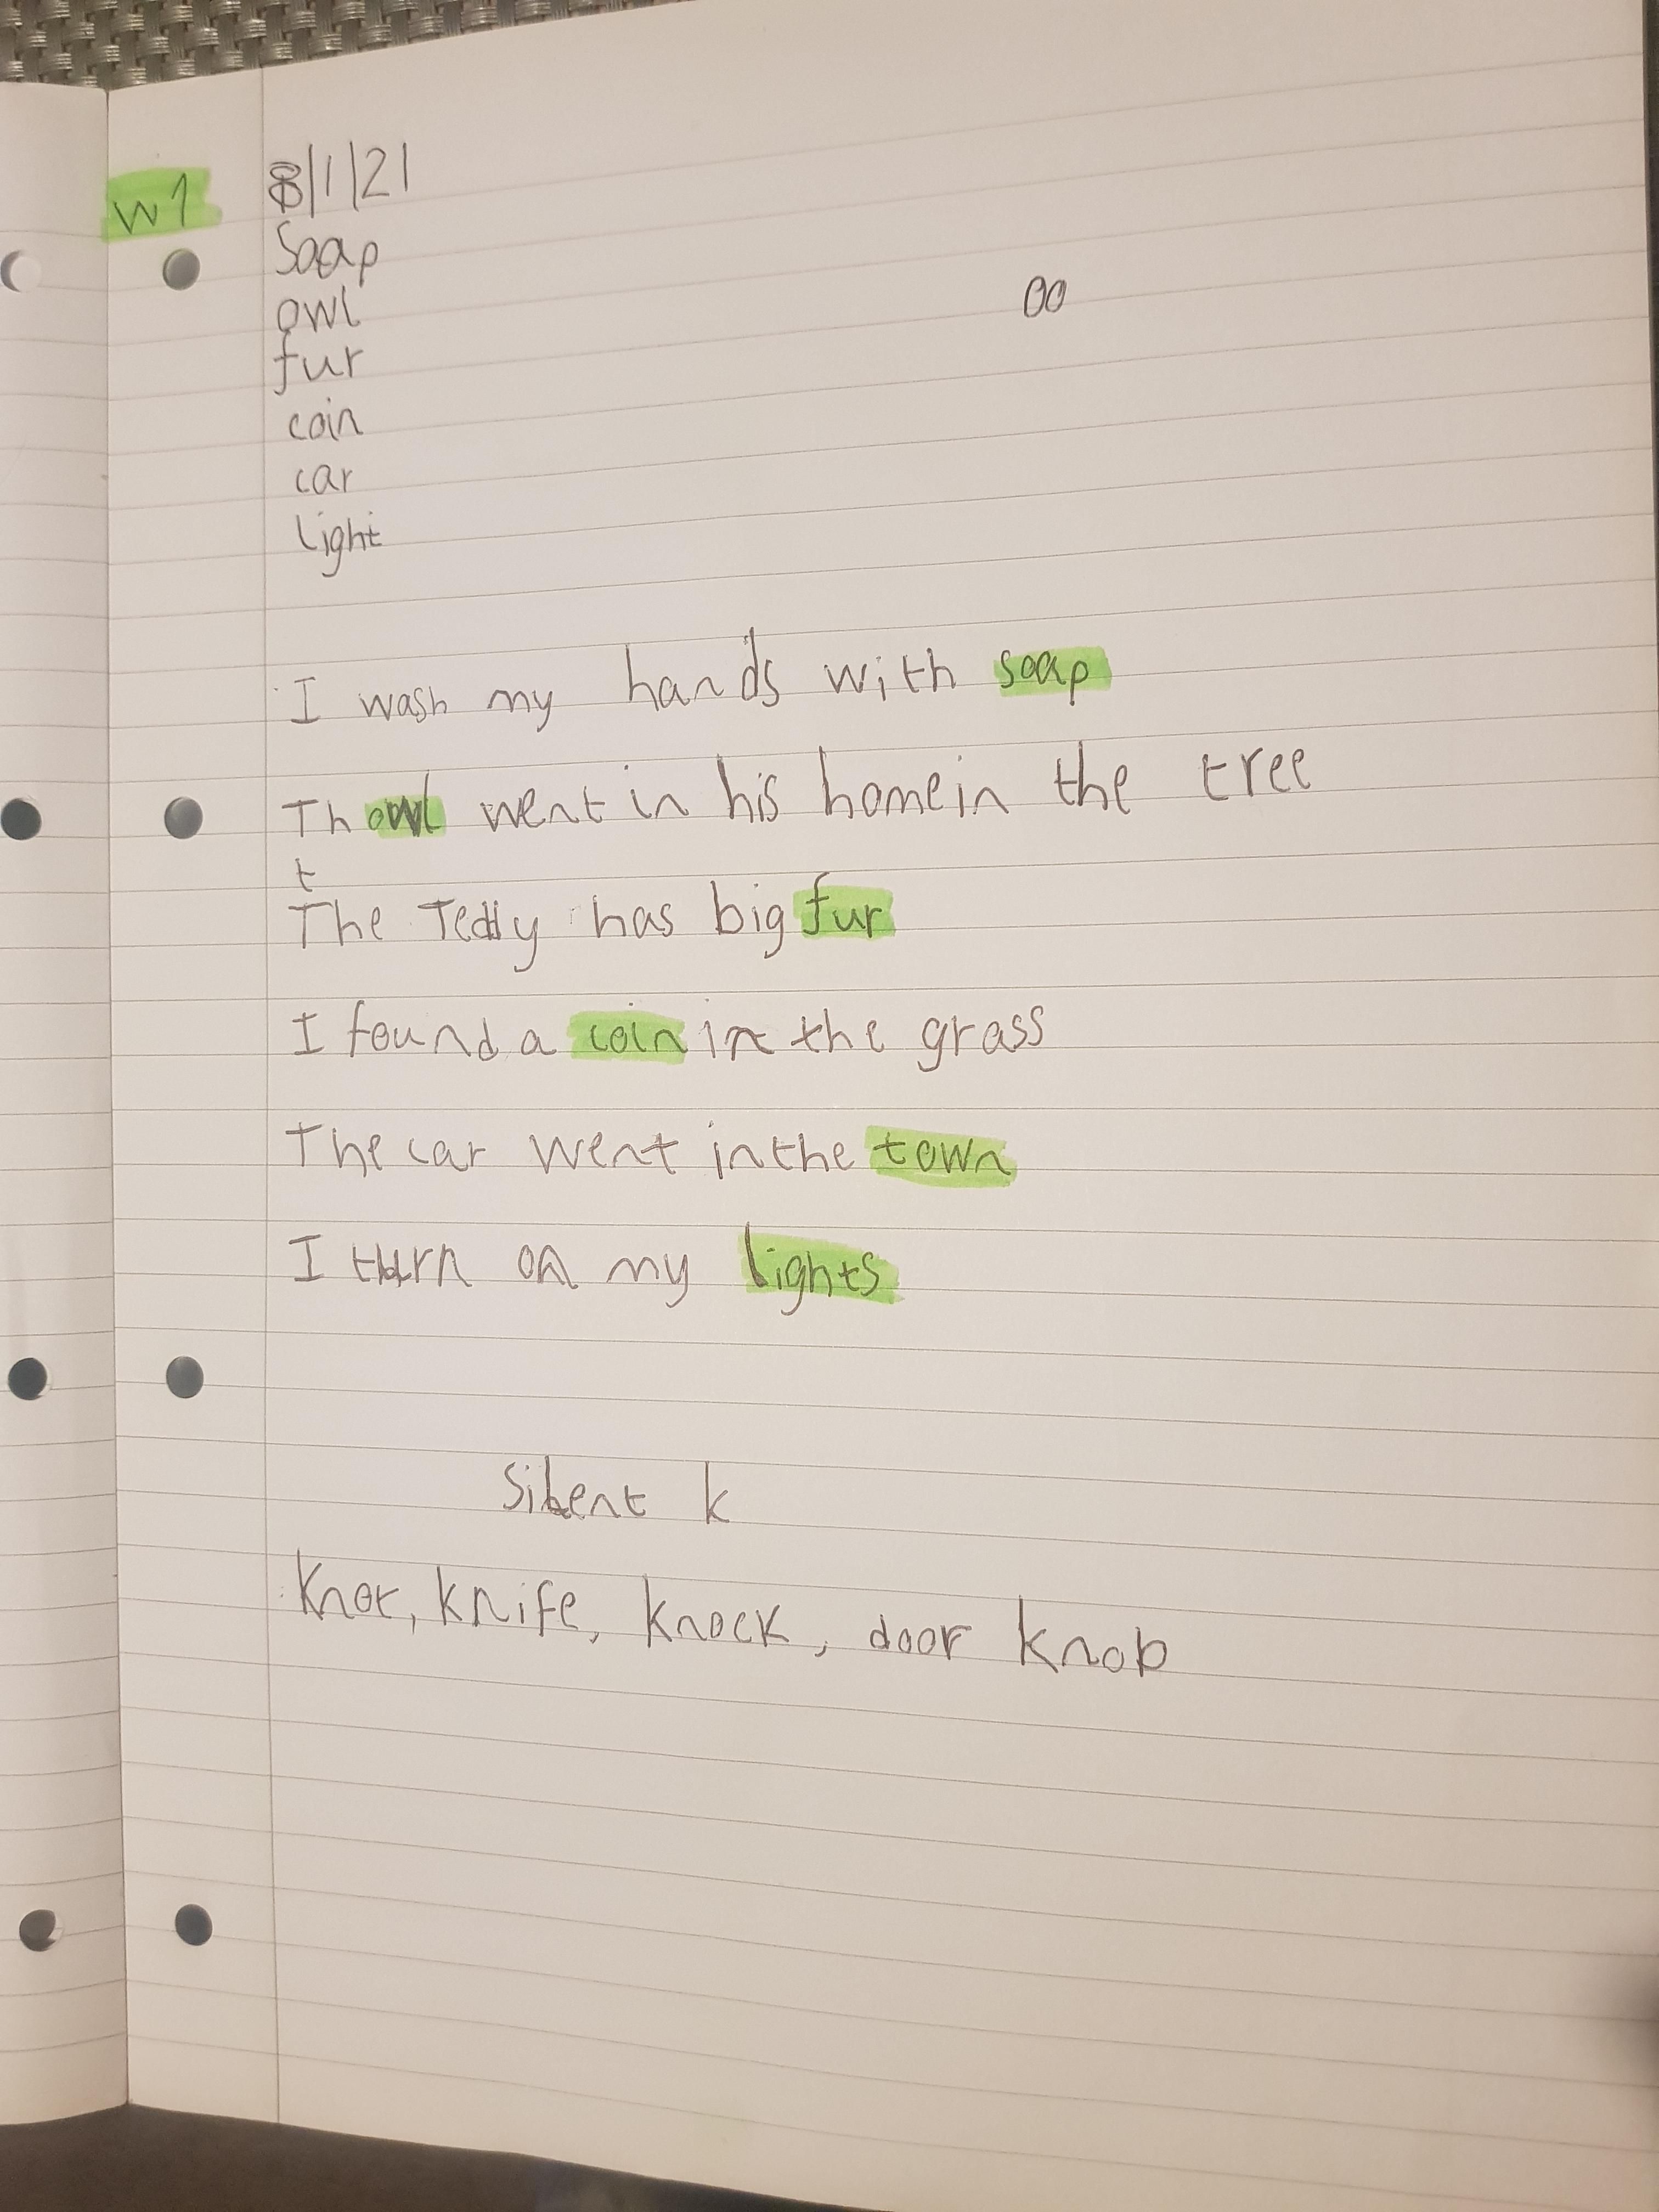 W1 8/1/21
Soap
owl
oo
fur
coin
car
light
I wash my hands with soap
Th owl went in his home in the tree
t
The Teddy has big fur
I found a coin in the grass
The car went in the town
I turn on my lights
Silent k
Knot, knife, knock, door knob